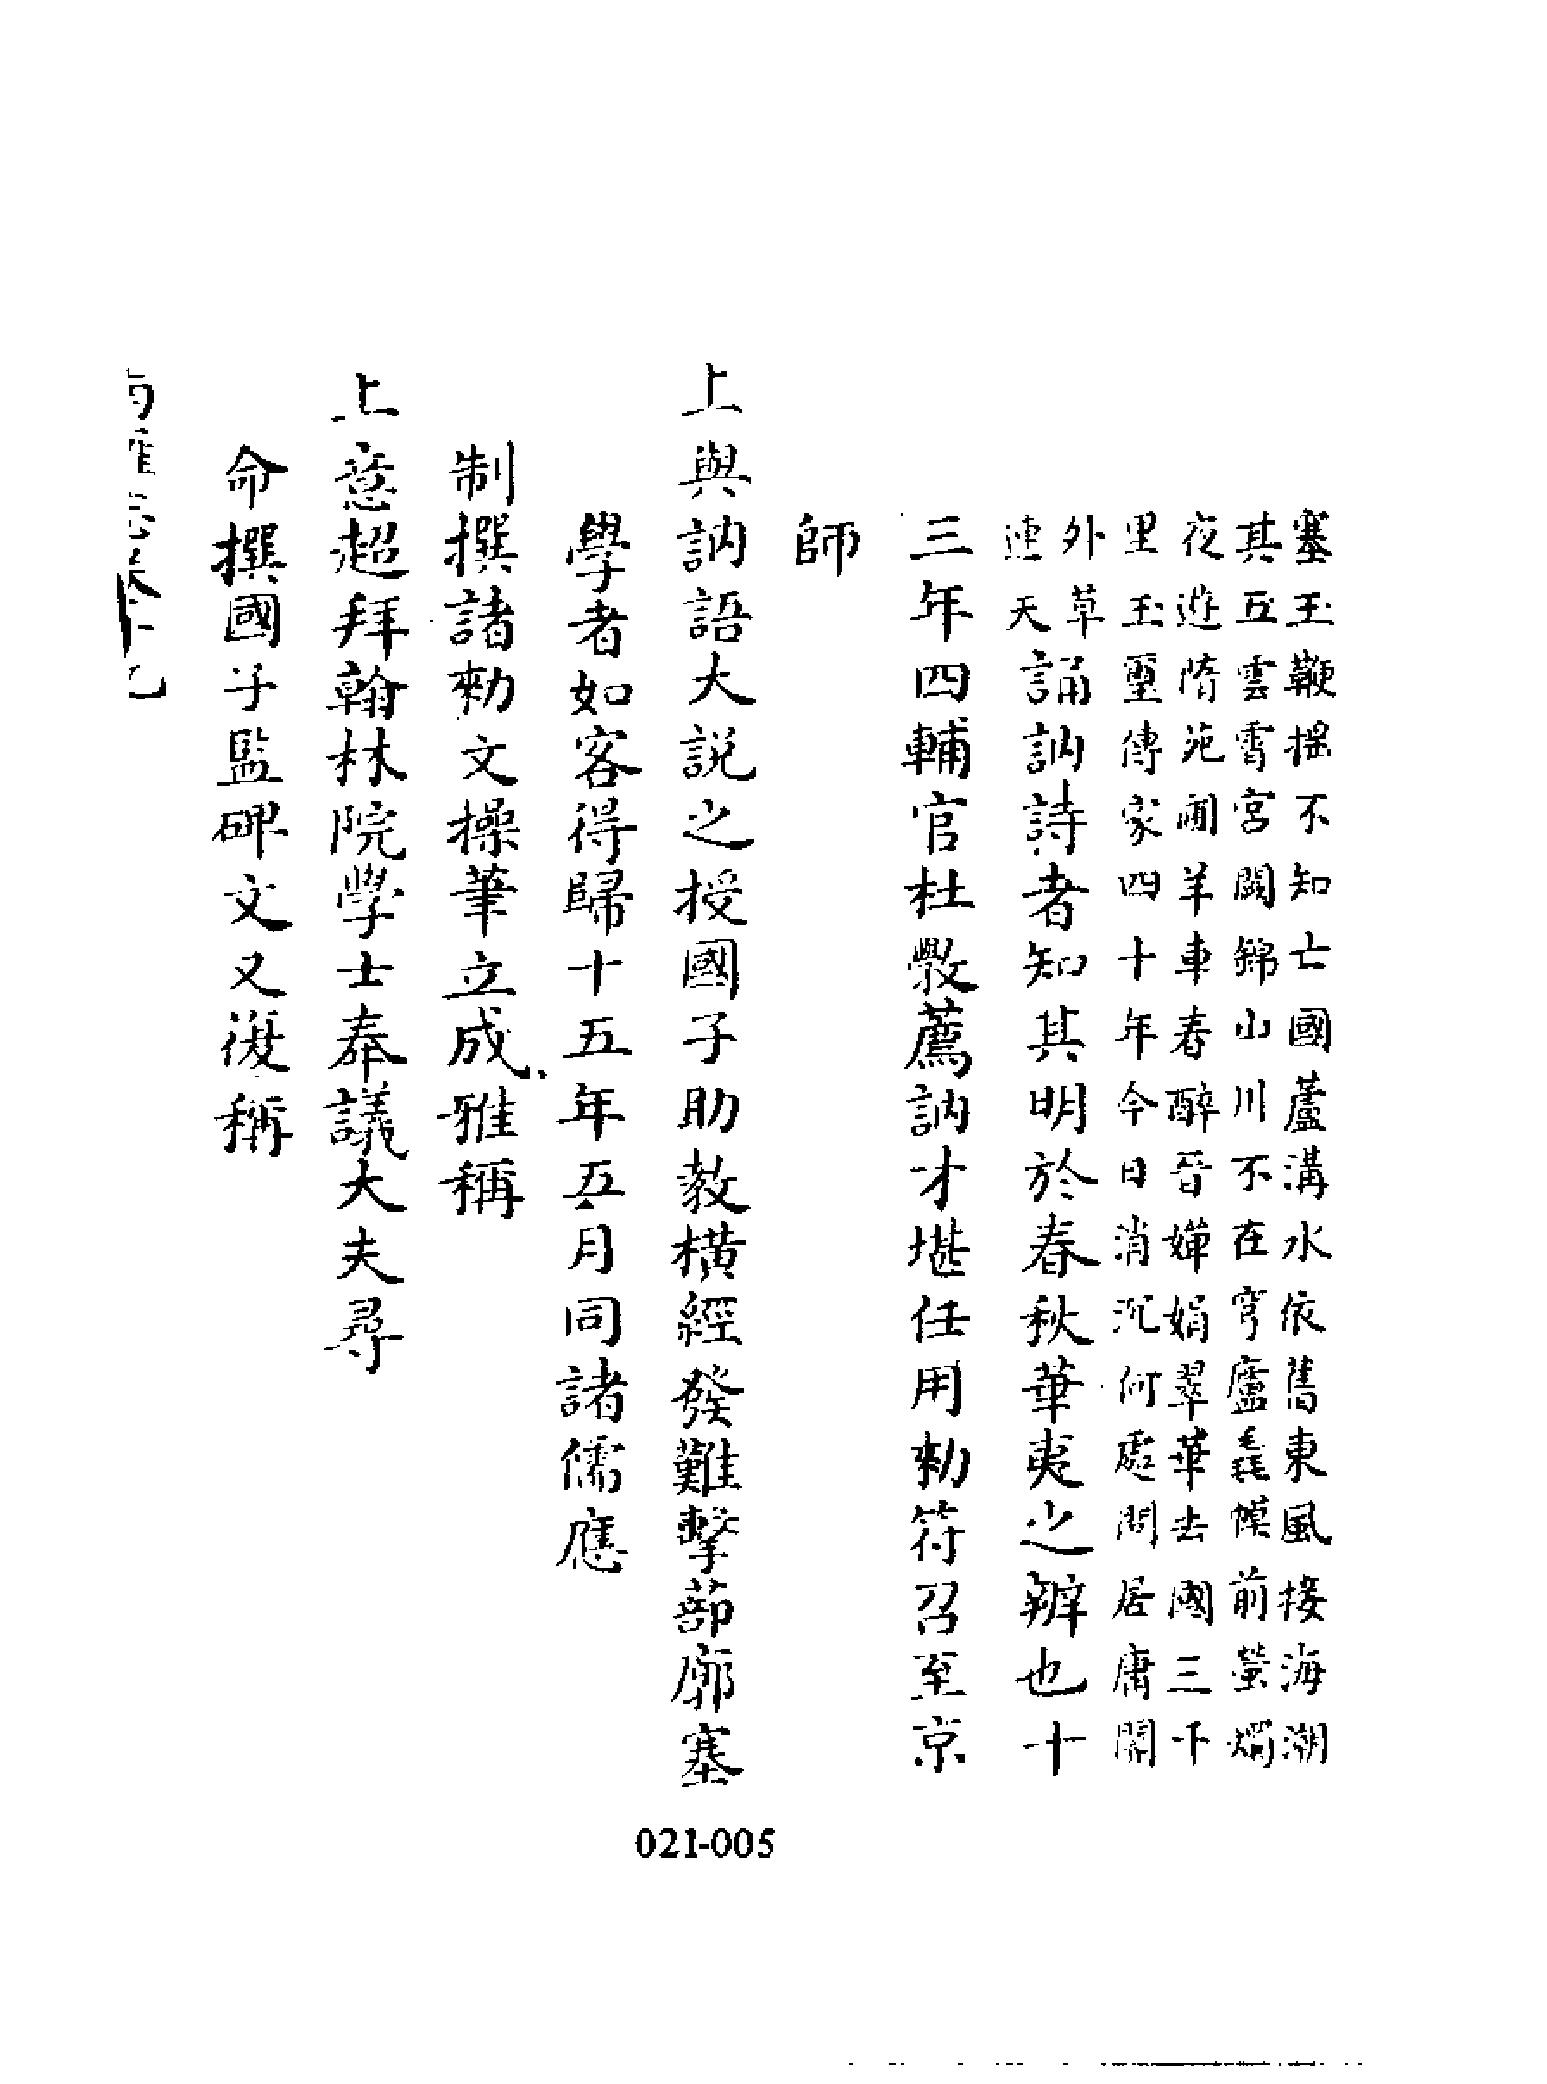 塞玉鞭揺不知亡國蘆溝水依舊東風接海潮
其五雲霄宮闕錦山川不在穹廬毳幙前螢燭
夜遊隋苑圃羊車春醉晉嬋娟翠華去國三千
里玉璽傳家四十年今日消沉何處問居庸關
外草
連天
誦訥詩者知其明於春秋華夷之辨也十
三年四輔官杜斆薦訥才堪任用勑符召至京
師
上與訥語大説之授國子助教橫經發難擊蔀廓塞
學者如客得歸十五年五月同諸儒應
制撰諸勑文操筆立成雅稱
上意超拜翰林院學士奉議大夫尋
命撰國子監碑文又復稱